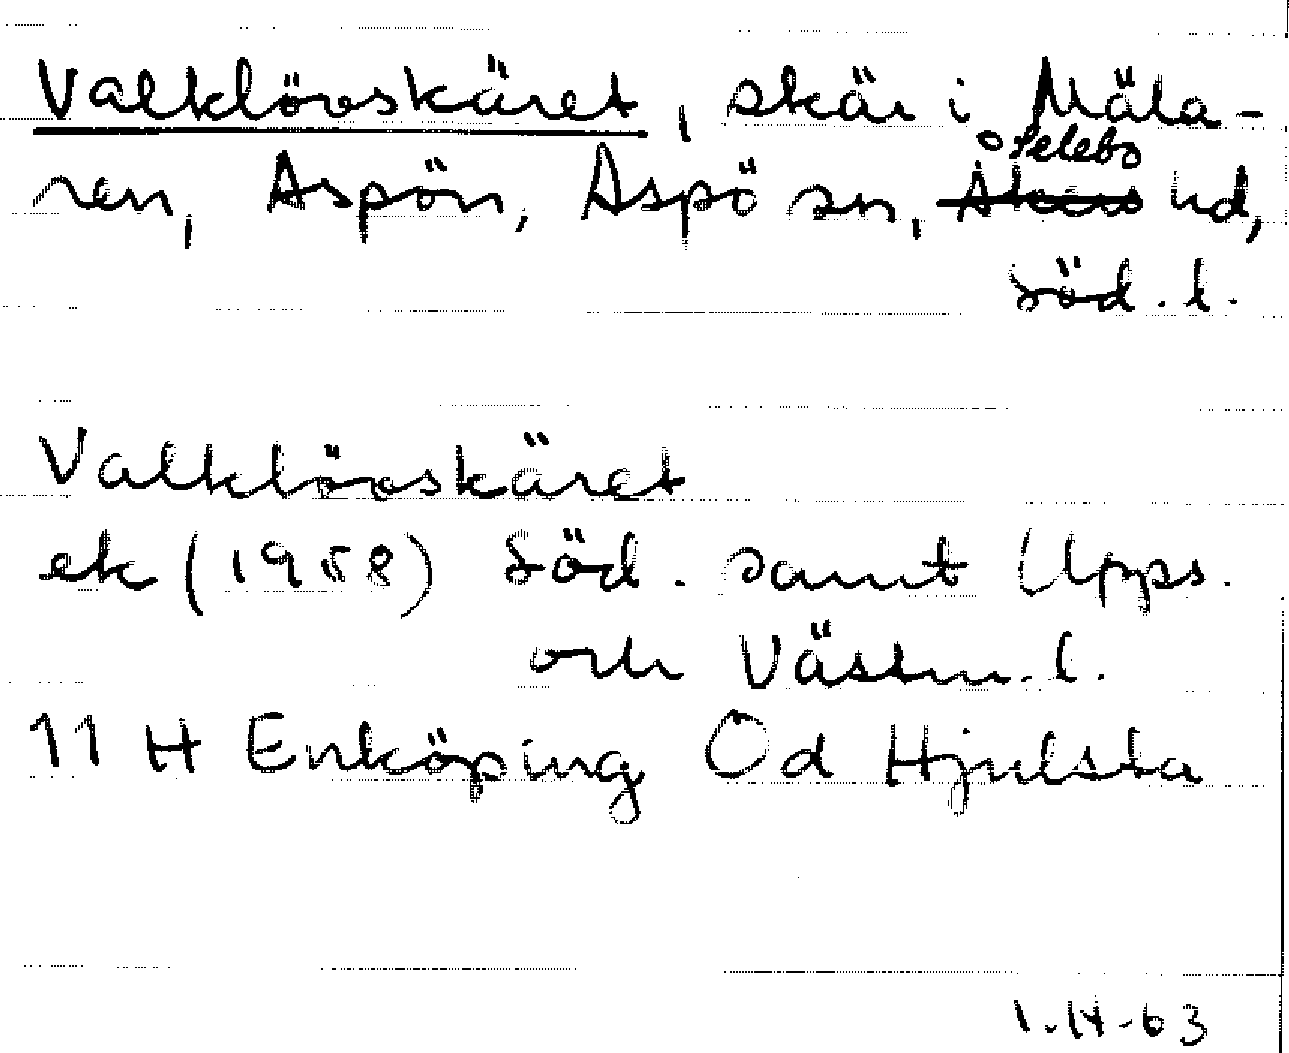 Valklövskäret, skär i Mäla-
Selebo
ren, Aspön, Aspö sn, Åkers hd,
Söd. l.
Valklövskäret
ek (1958) Söd. samt Upps.
och Västm. l.
11 H Enköping Öd Hjulsta